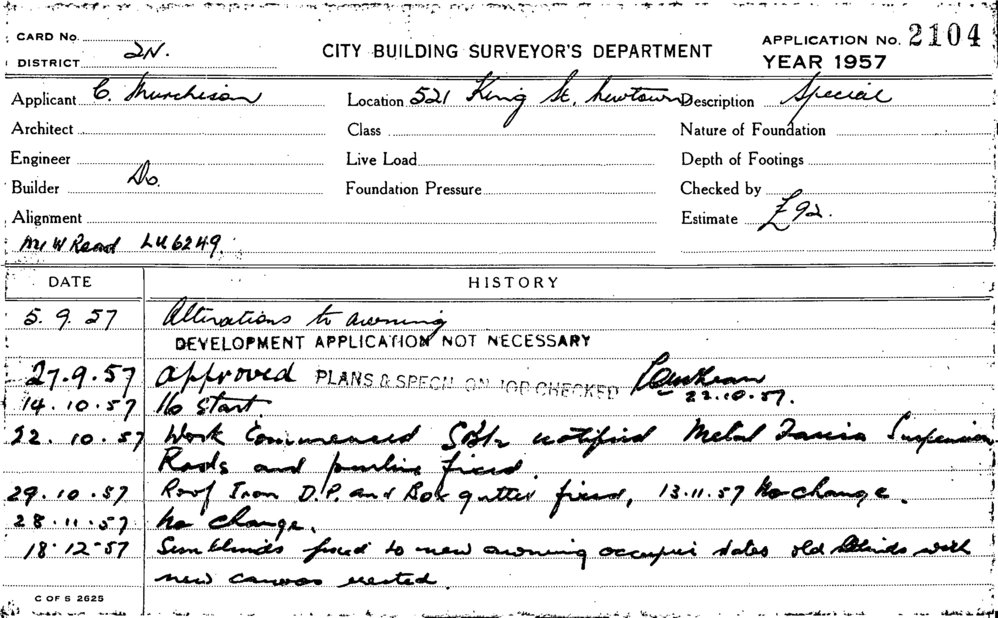 CARD No.
DISTRICT 2N.
CITY BUILDING SURVEYOR'S DEPARTMENT
APPLICATION No. 2104
YEAR 1957
Applicant C. Murchison Location 521 King St, Newtown Description Special
Architect Class Nature of Foundation
Engineer Live Load Depth of Footings
Builder Do. Foundation Pressure Checked by
Alignment Estimate £92.
Mr W Read LU6249.
DATE HISTORY
5.9.57 Alterations to awning
DEVELOPMENT APPLICATION NOT NECESSARY
27.9.57 approved PLANS & SPECN ON JOB CHECKED
22.10.57.
14.10.57 No start.
22.10.57 Work Commenced notified Metal Fascia Suspension
Rods and purlins fixed.
29.10.57 Roof Iron D.P. and Box gutter fixed, 13.11.57 No change.
28.11.57 No change.
18.12-57 Sunblinds fixed to new awning occupier states old blinds with
new canvas erected.
C OF S 2625